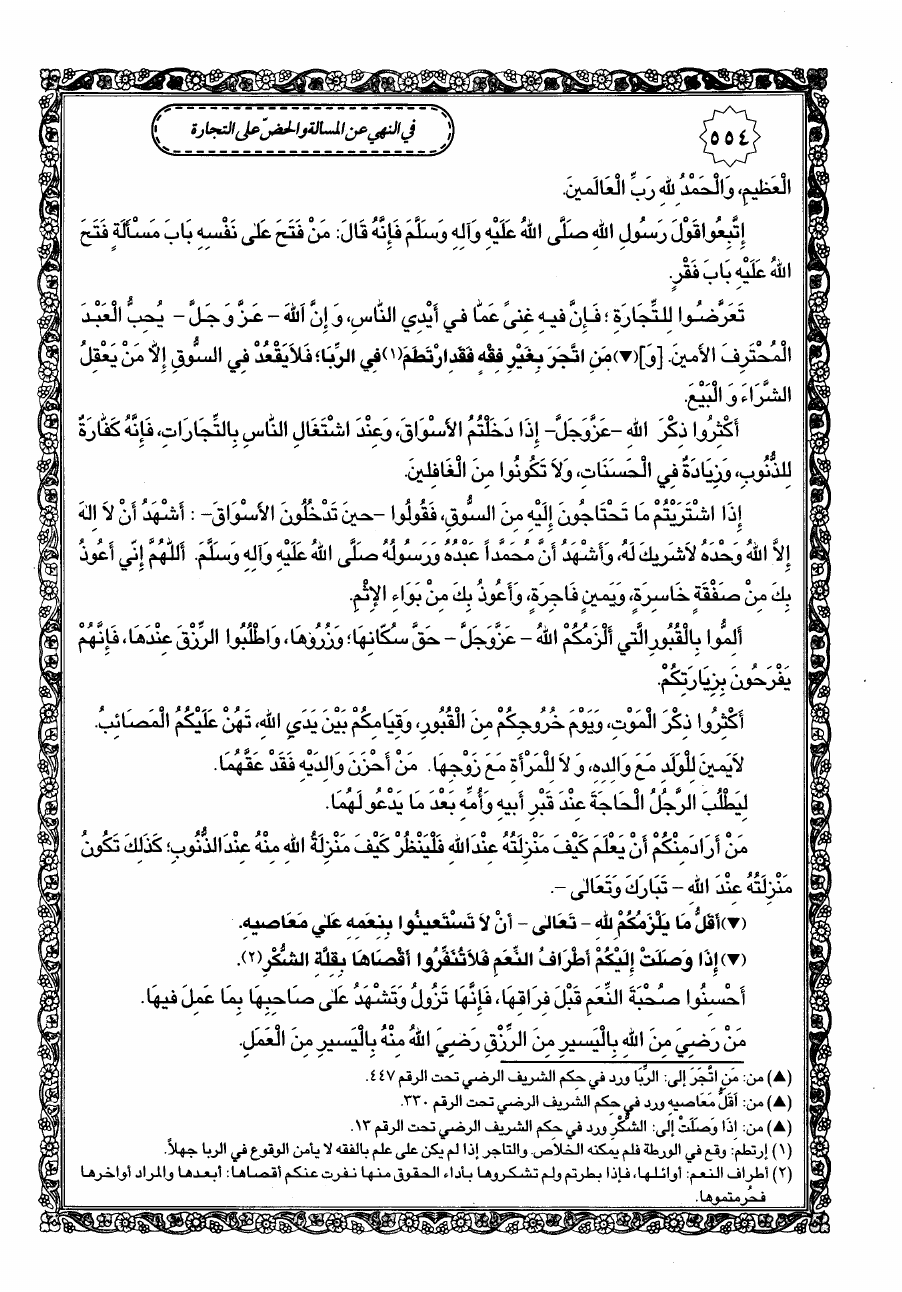 ٥٥٤
في النهي عن المسالة والحضّ على التجارة
الْعَظيمِ، وَالْحَمْدُ لِلّهِ رَبِّ الْعَالَمينَ.
إِتَّبِعُوا قَوْلَ رَسُولِ اللهِ صَلَّى اللهُ عَلَيْهِ وَآلِهِ وَسَلَّمَ فَإِنَّهُ قَالَ: مَنْ فَتَحَ عَلىٰ نَفْسِهِ بَابَ مَسْأَلَةٍ فَتَحَ
اللهُ عَلَيْهِ بَابَ فَقْرٍ.
تَعَرَّضُوا لِلتِّجَارَةِ ؛ فَإِنَّ فيهِ غِنىً عَمَّا في أَيْدِي النَّاسِ، وَ إِنَّ اللهَ – عَزَّ وَ جَلَّ – يُحِبُّ الْعَبْدَ
الْمُحْتَرِفَ الأَمينَ. [وَ](▼)مَنِ اتَّجَرَ بِغَيْرِ فِقْهٍ فَقَدِ ارْتَطَمَ(١)فِي الرِّبَا؛ فَلاَ يَقْعُدْ فِي السُّوقِ إِلاَّ مَنْ يَعْقِلُ
الشِّرَاءَ وَ الْبَيْعَ.
أَكْثِرُوا ذِكْرَ اللهِ –عَزَّوَجَلَّ– إِذَا دَخَلْتُمُ الأَسْوَاقَ، وَعِنْدَ اشْتِغَالِ النَّاسِ بِالتِّجَارَاتِ، فَإِنَّهُ كَفَّارَةٌ
لِلذُّنُوبِ، وَزِيَادَةٌ فِي الْحَسَنَاتِ، وَلاَ تَكُونُوا مِنَ الْغَافِلينَ.
إِذَا اشْتَرَيْتُمْ مَا تَحْتَاجُونَ إِلَيْهِ مِنَ السُّوقِ، فَقُولُوا –حينَ تَدْخُلُونَ الأَسْوَاقَ– : أَشْهَدُ أَنْ لاَ إِلهَ
إِلاَّ اللهُ وَحْدَهُ لاَشَريكَ لَهُ، وَأَشْهَدُ أَنَّ مُحَمَّداً عَبْدُهُ وَرَسُولُهُ صَلَّى اللهُ عَلَيْهِ وَآلِهِ وَسَلَّمَ. أَللّهُمَّ إِنّي أَعُوذُ
بِكَ مِنْ صَفْقَةٍ خَاسِرَةٍ، وَيَمينٍ فَاجِرَةٍ، وَأَعُوذُ بِكَ مِنْ بَوَاءِ الإِثْمِ.
أَلِمُّوا بِالْقُبُورِ الَّتي أَلْزَمَكُمُ اللهُ – عَزَّوَجَلَّ – حَقَّ سُكَّانِهَا؛ وَزُرُوهَا، وَاطْلُبُوا الرِّزْقَ عِنْدَهَا، فَإِنَّهُمْ
يَفْرَحُونَ بِزِيَارَتِكُمْ.
أَكْثِرُوا ذِكْرَ الْمَوْتِ، وَيَوْمَ خُرُوجِكُمْ مِنَ الْقُبُورِ، وَقِيَامِكُمْ بَيْنَ يَدَيِ اللهِ، تَهُنْ عَلَيْكُمُ الْمَصَائِبُ.
لاَيَمينَ لِلْوَلَدِ مَعَ وَالِدِهِ، وَ لاَ لِلْمَرْأَةِ مَعَ زَوْجِهَا. مَنْ أَحْزَنَ وَالِدَيْهِ فَقَدْ عَقَّهُمَا.
لِيَطْلُبَ الرَّجُلُ الْحَاجَةَ عِنْدَ قَبْرِ أَبيهِ وَأُمِّهِ بَعْدَ مَا يَدْعُو لَهُمَا.
مَنْ أَرَادَ مِنْكُمْ أَنْ يَعْلَمَ كَيْفَ مَنْزِلَتُهُ عِنْدَ اللهِ فَلْيَنْظُرْ كَيْفَ مَنْزِلَةُ اللهِ مِنْهُ عِنْدَ الذُّنُوبِ؛ كَذلِكَ تَكُونُ
مَنْزِلَتُهُ عِنْدَ اللهِ – تَبَارَكَ وَتَعَالىٰ –.
(▼)أَقَلُّ مَا يَلْزَمُكُمْ لِلّهِ – تَعَالىٰ – أَنْ لاَ تَسْتَعينُوا بِنِعَمِهِ عَلىٰ مَعَاصيهِ.
(▼)إِذَا وَصَلَتْ إِلَيْكُمْ أَطْرَافُ النِّعَمِ فَلاَتُنَفِّرُوا أَقْصَاهَا بِقِلَّةِ الشُّكْرِ(٢).
أَحْسِنُوا صُحْبَةَ النِّعَمِ قَبْلَ فِرَاقِهَا، فَإِنَّهَا تَزُولُ وَتَشْهَدُ عَلىٰ صَاحِبِهَا بِمَا عَمِلَ فيهَا.
مَنْ رَضِيَ مِنَ اللهِ بِالْيَسيرِ مِنَ الرِّزْقِ رَضِيَ اللهُ مِنْهُ بِالْيَسيرِ مِنَ الْعَمَلِ.
(▲) من: مَنِ اتَّجَرَ إلى: الرِّبَا ورد في حكم الشريف الرضي تحت الرقم ٤٤٧.
(▲) من: أَقَلُّ مَعَاصيهِ ورد في حِكم الشريف الرضي تحت الرقم ٣٣٠.
(▲) من: إِذَا وَصَلَتْ إلى: الشُّكْرِ ورد في حكم الشريف الرضي تحت الرقم ١٣.
(١) إرتطم: وقع في الورطة فلم يمكنه الخلاص. والتاجر إذا لم يكن على علم بالفقه لا يأمن الوقوع في الربا جهلاً.
(٢) أطراف النعم: أوائلها، فإذا بطرتم ولم تشكروها بأداء الحقوق منها نفرت عنكم أقصاها: أبعدها والمراد أواخرها
فحُرمتموها.